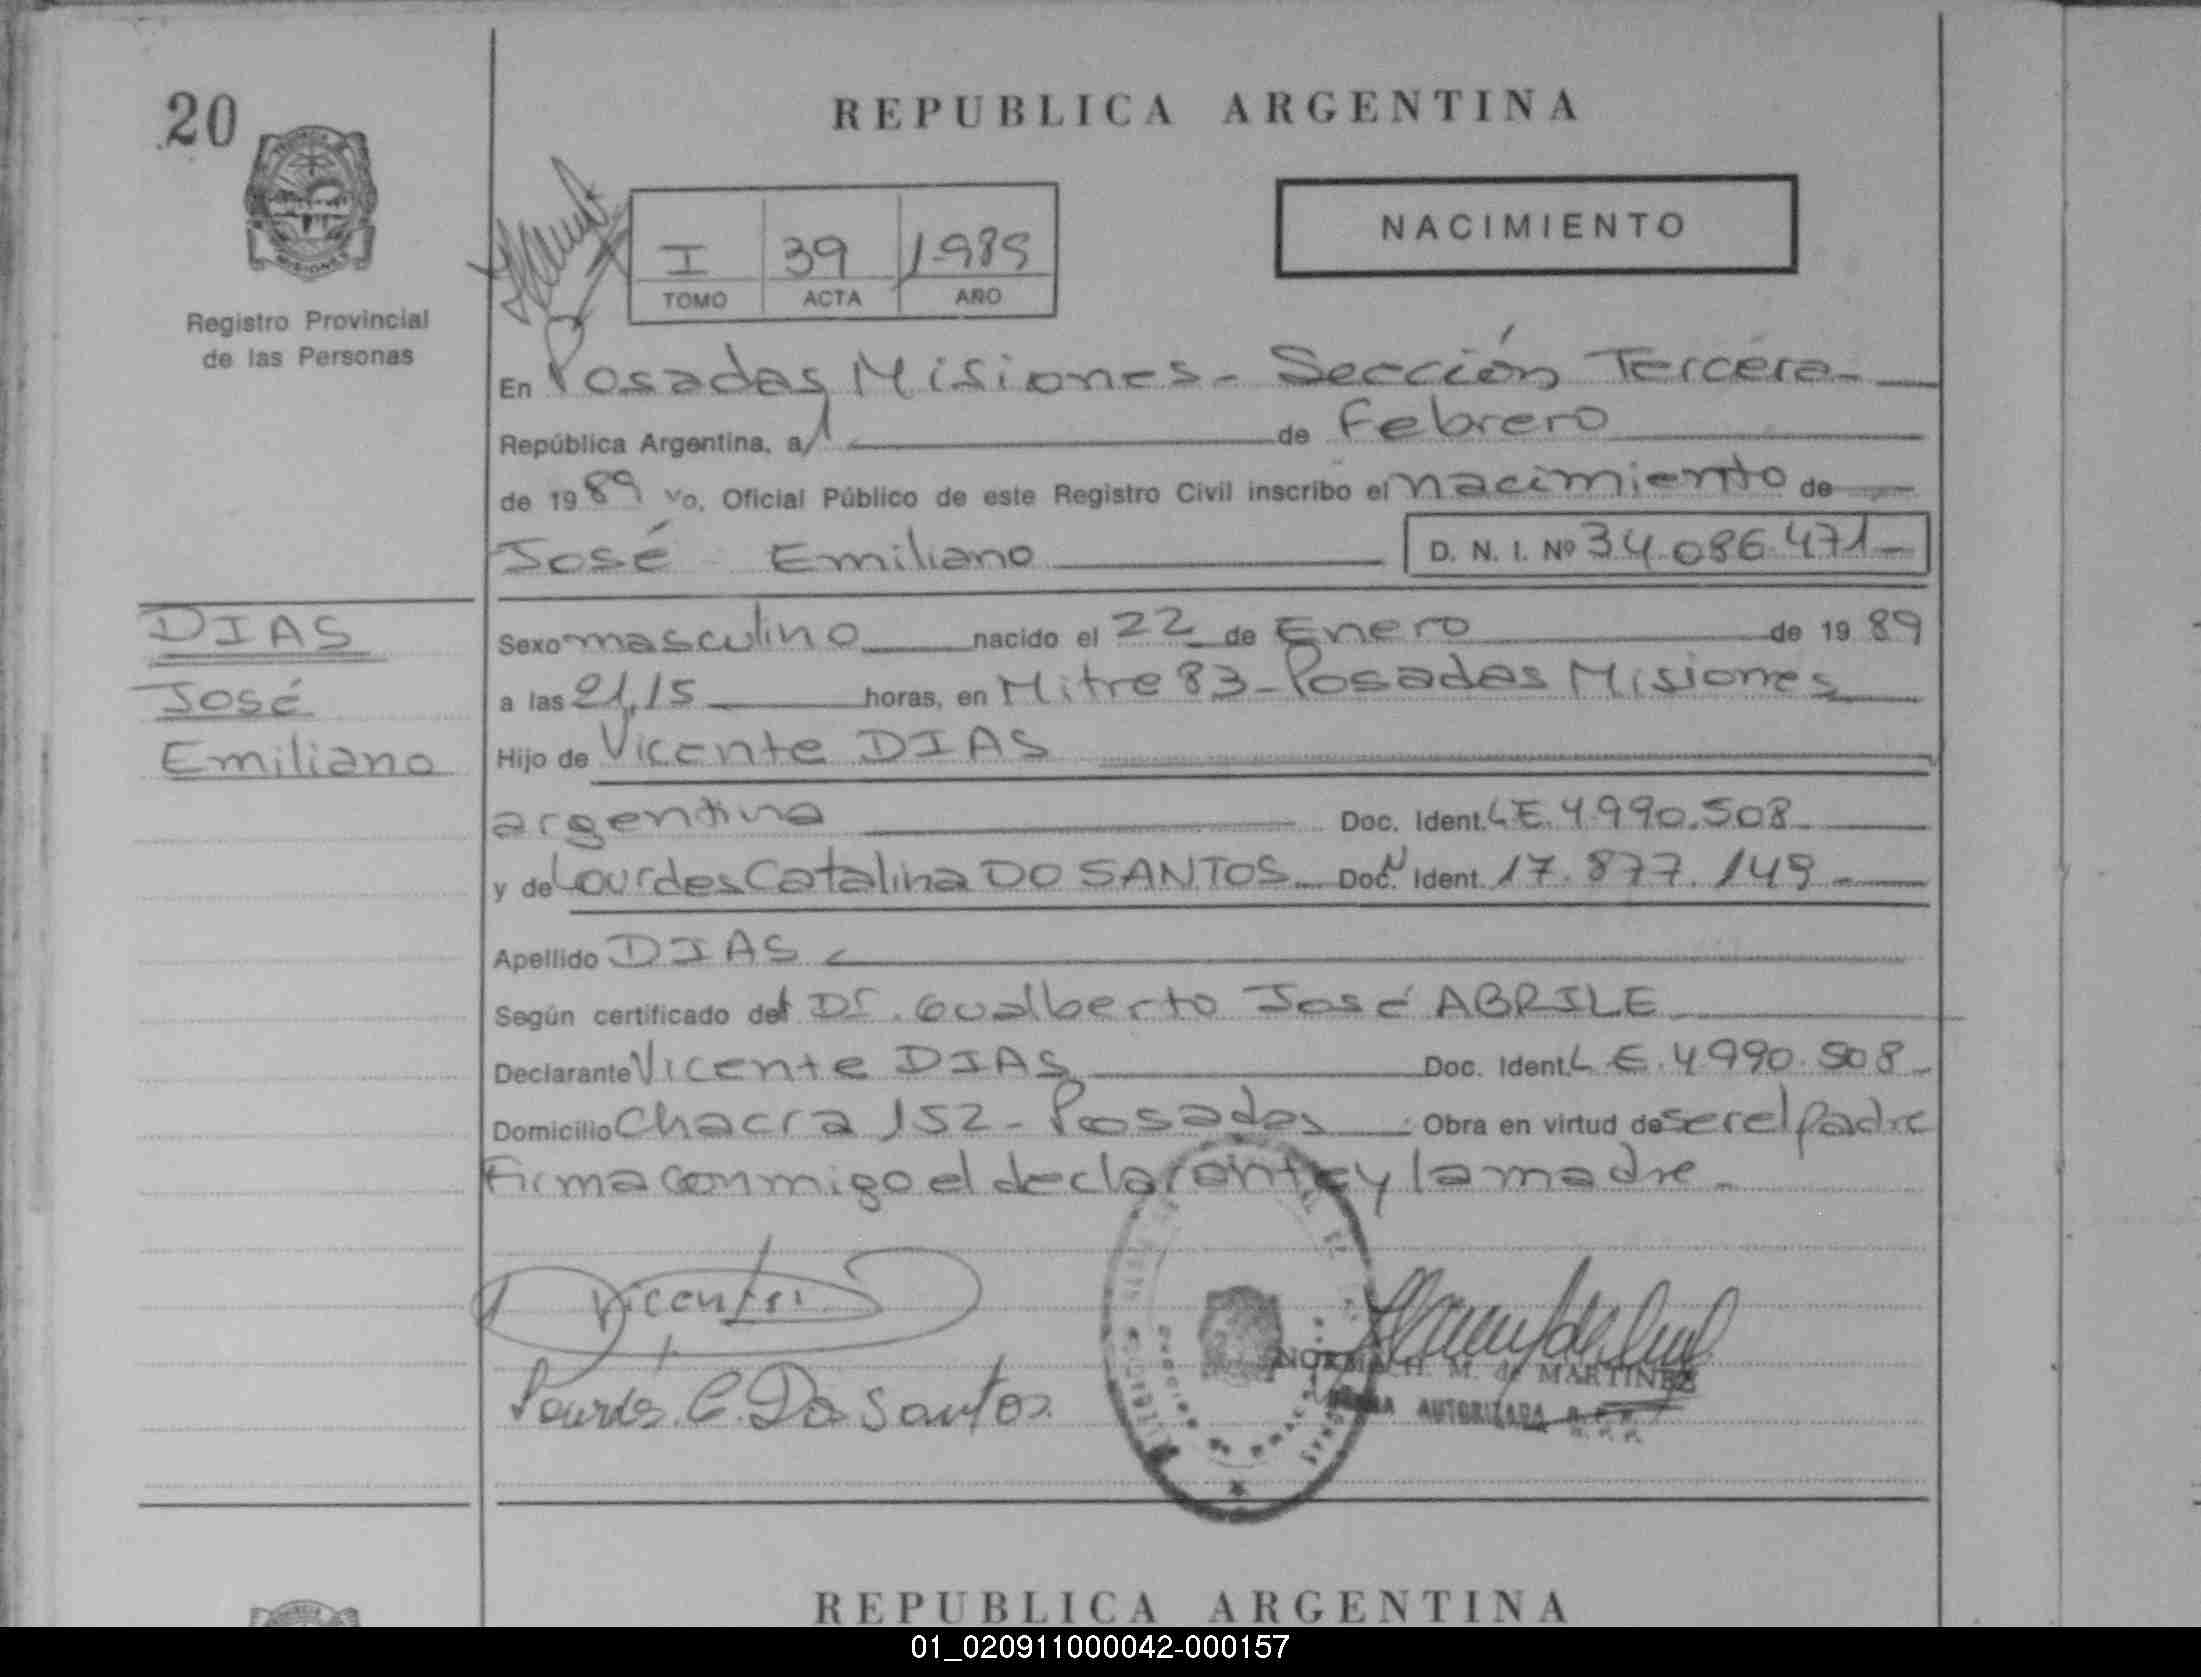 20
REPUBLICA ARGENTINA
NACIMIENTO
I 39 1989
TOMO ACTA AÑO
Registro Provincial
de las Personas
En Posadas Misiones - Sección Tercera
República Argentina, a 1 de Febrero
de 1989 yo, Oficial Público de este Registro Civil inscribo el nacimiento de
José Emiliano D. N. I. Nº 34.086.471
DIAS
José
Emiliano
Sexo masculino nacido el 22 de Enero de 1989
a las 21,15 horas, en Mitre 83 - Posadas Misiones
Hijo de Vicente DIAS
argentina Doc. Ident. LE. 4.990.508
y de Lourdes Catalina DO SANTOS Doc. Ident. 17.877.149
Apellido DIAS
Según certificado del Dr. Gualberto José ABRILE
Declarante Vicente DIAS Doc. Ident. L E. 4.990.508
Domicilio Chacra 152 - Posadas Obra en virtud de ser el padre
Firma conmigo el declarante y la madre.
Lourdes C. Do Santos
NORMA H. M. de MARTINEZ
FIRMA AUTORIZADA
REPUBLICA ARGENTINA
01_020911000042-000157